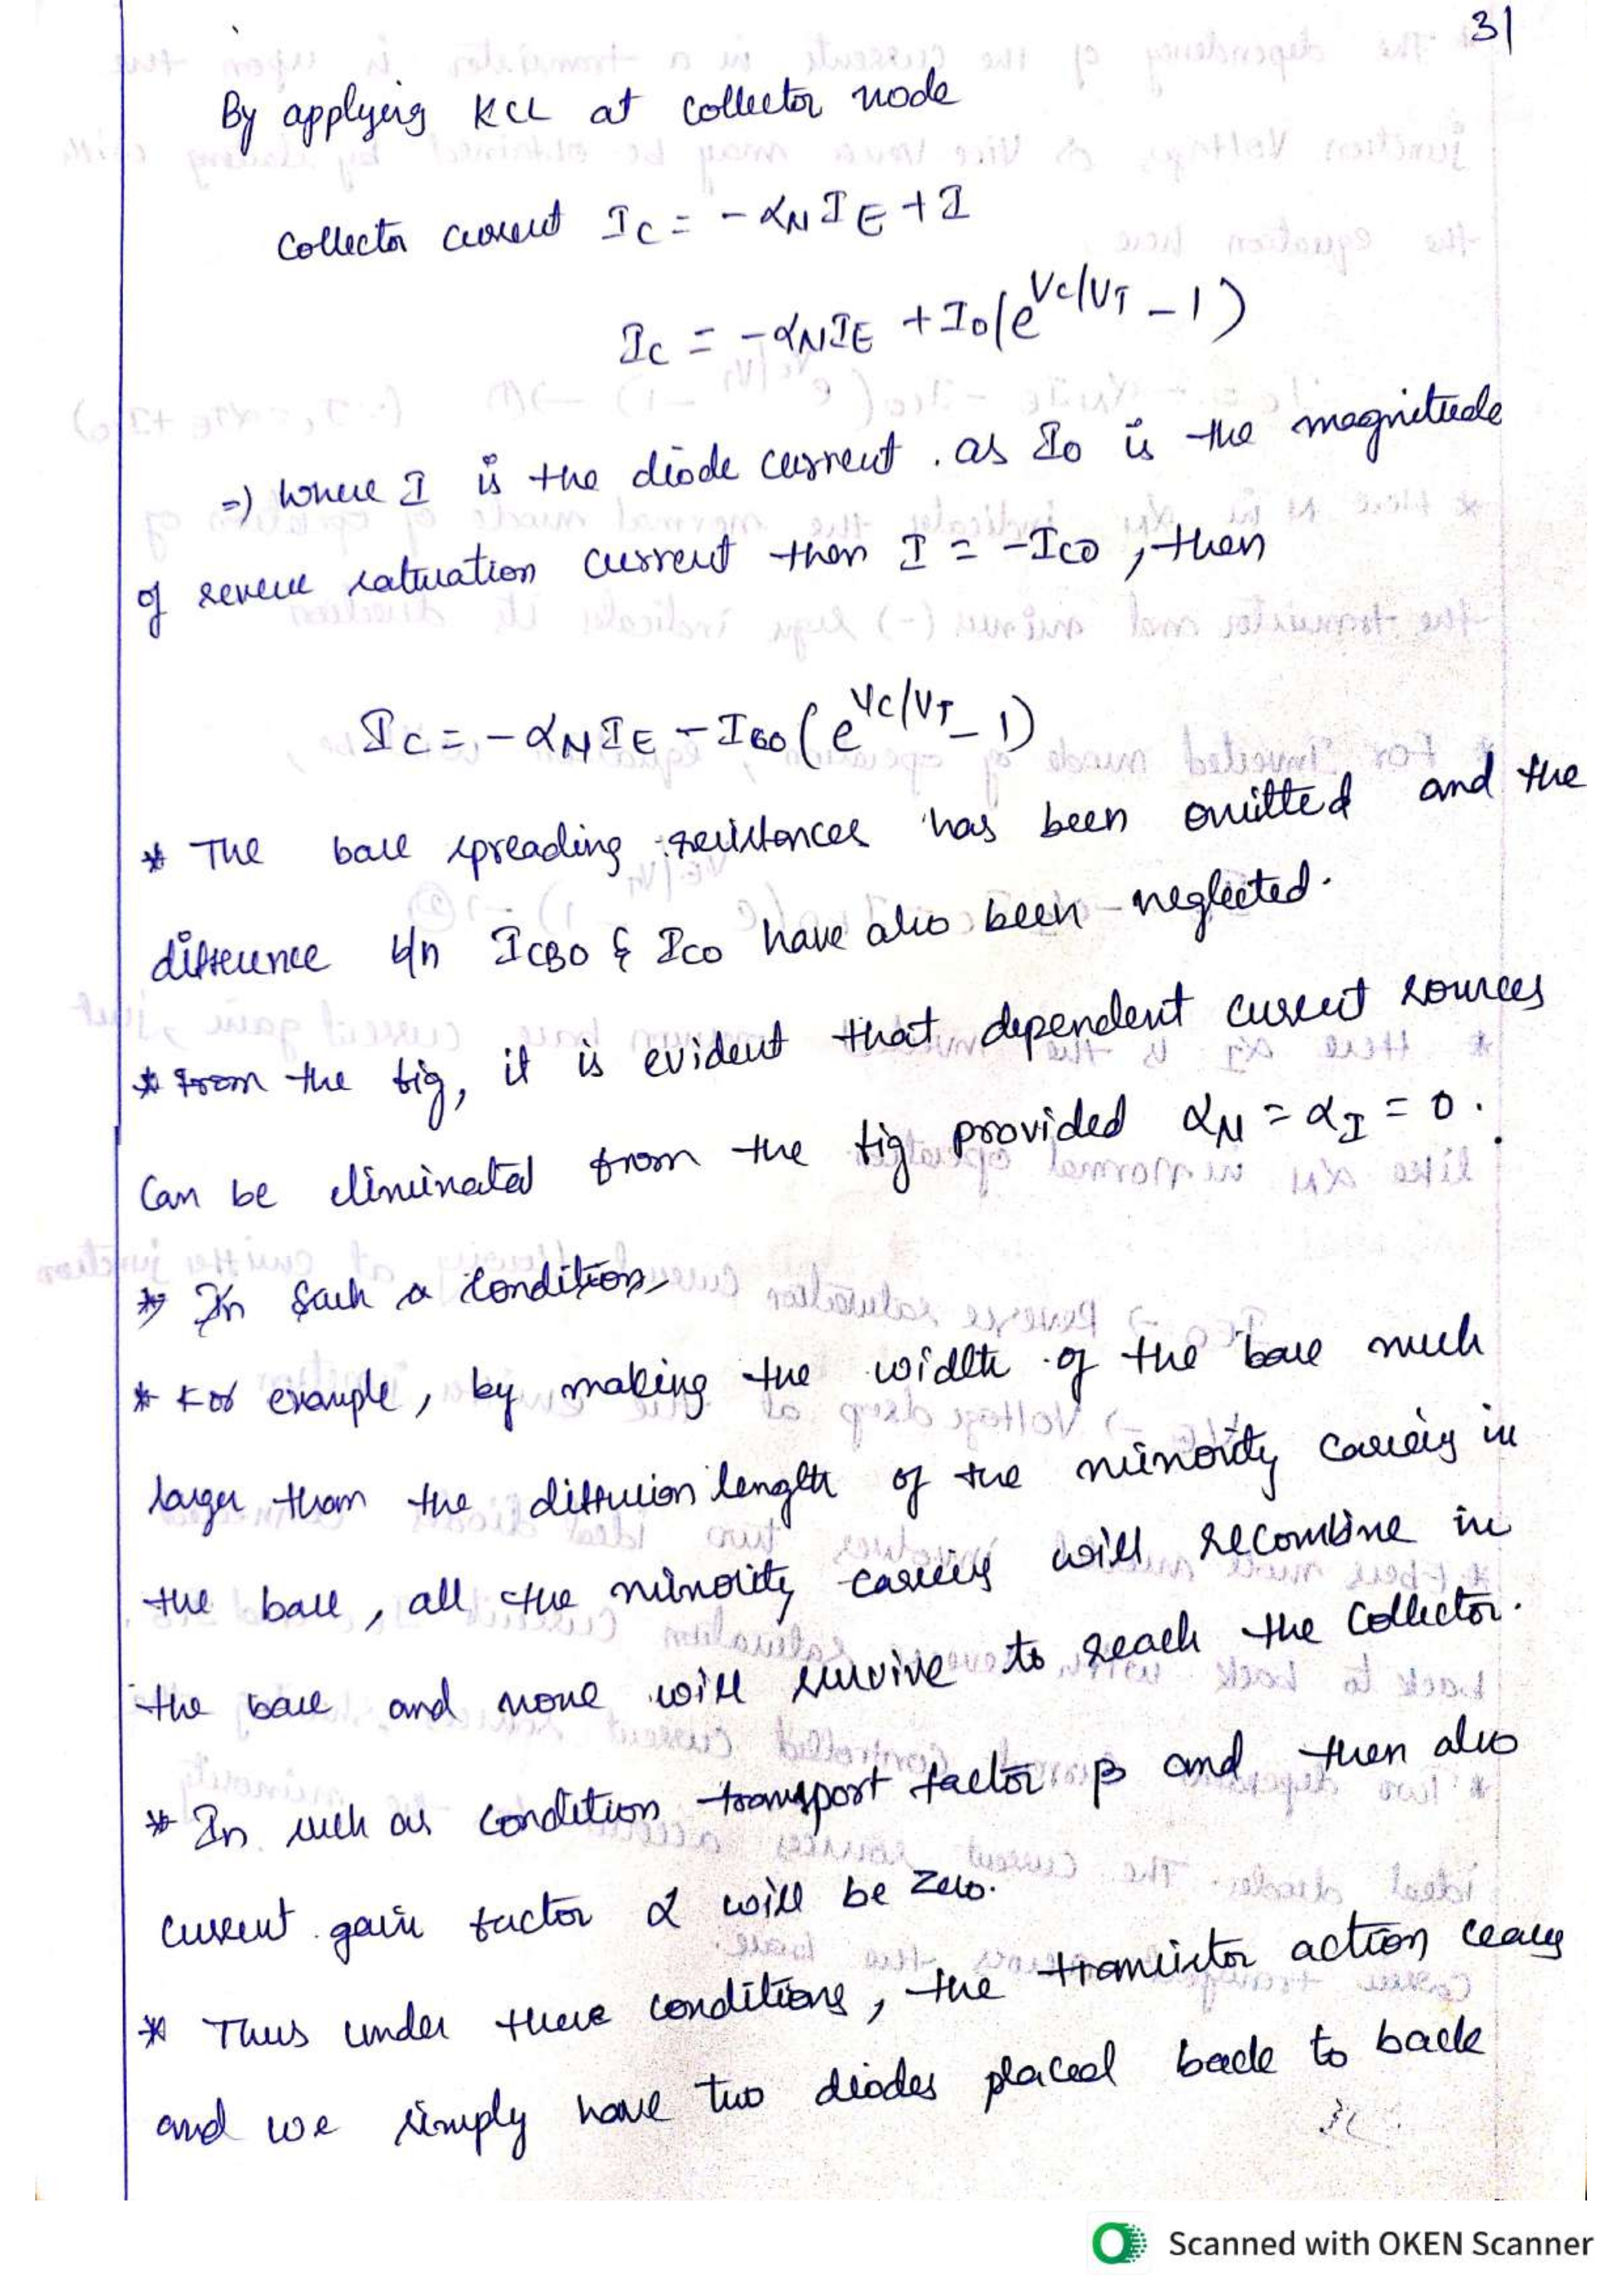 31
By applying KCL at collector node
Collector current I_C = -α_N I_E + I
I_C = -α_N I_E + I_0(e^{V_C/V_T} - 1)
=) where I is the diode current. as I_0 is the magnitude
of reverse saturation current then I = -I_CO, then
I_C = -α_N I_E - I_CO(e^{V_C/V_T} - 1)
* The base spreading resistances has been omitted and the
difference b/n I_CBO & I_CO have also been neglected.
* From the fig, it is evident that dependent current sources
Can be eliminated from the fig provided α_N = α_I = 0.
* In such a condition
* For example, by making the width of the base much
larger than the diffusion length of the minority carriers in
the base, all the minority carriers will recombine in
the base and none will survive to reach the Collector.
* In such as condition transport factor β and then also
current gain factor α will be zero.
* Thus under these conditions, the transistor action ceases
and we simply have two diodes placed back to back
Scanned with OKEN Scanner